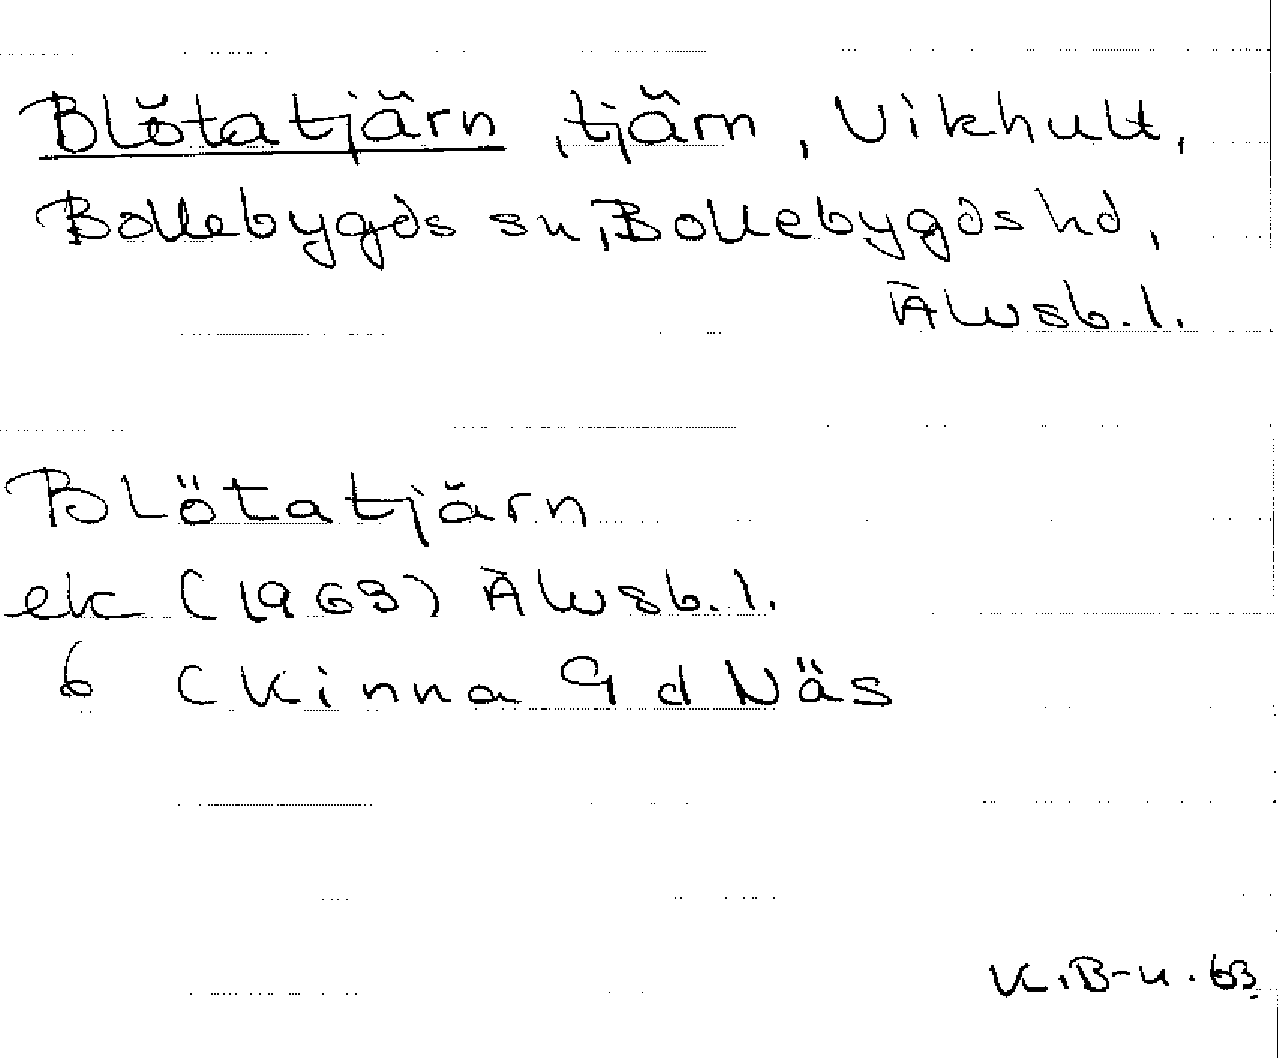 Blötatjärn, tjärn, Vikhult,
Bollebygds sn, Bollebygds hd,
Älvsb. l.
Blötatjärn
ek (1963) Älvsb. l.
6 (Kinna 9 d Näs
K.B-n. 63.